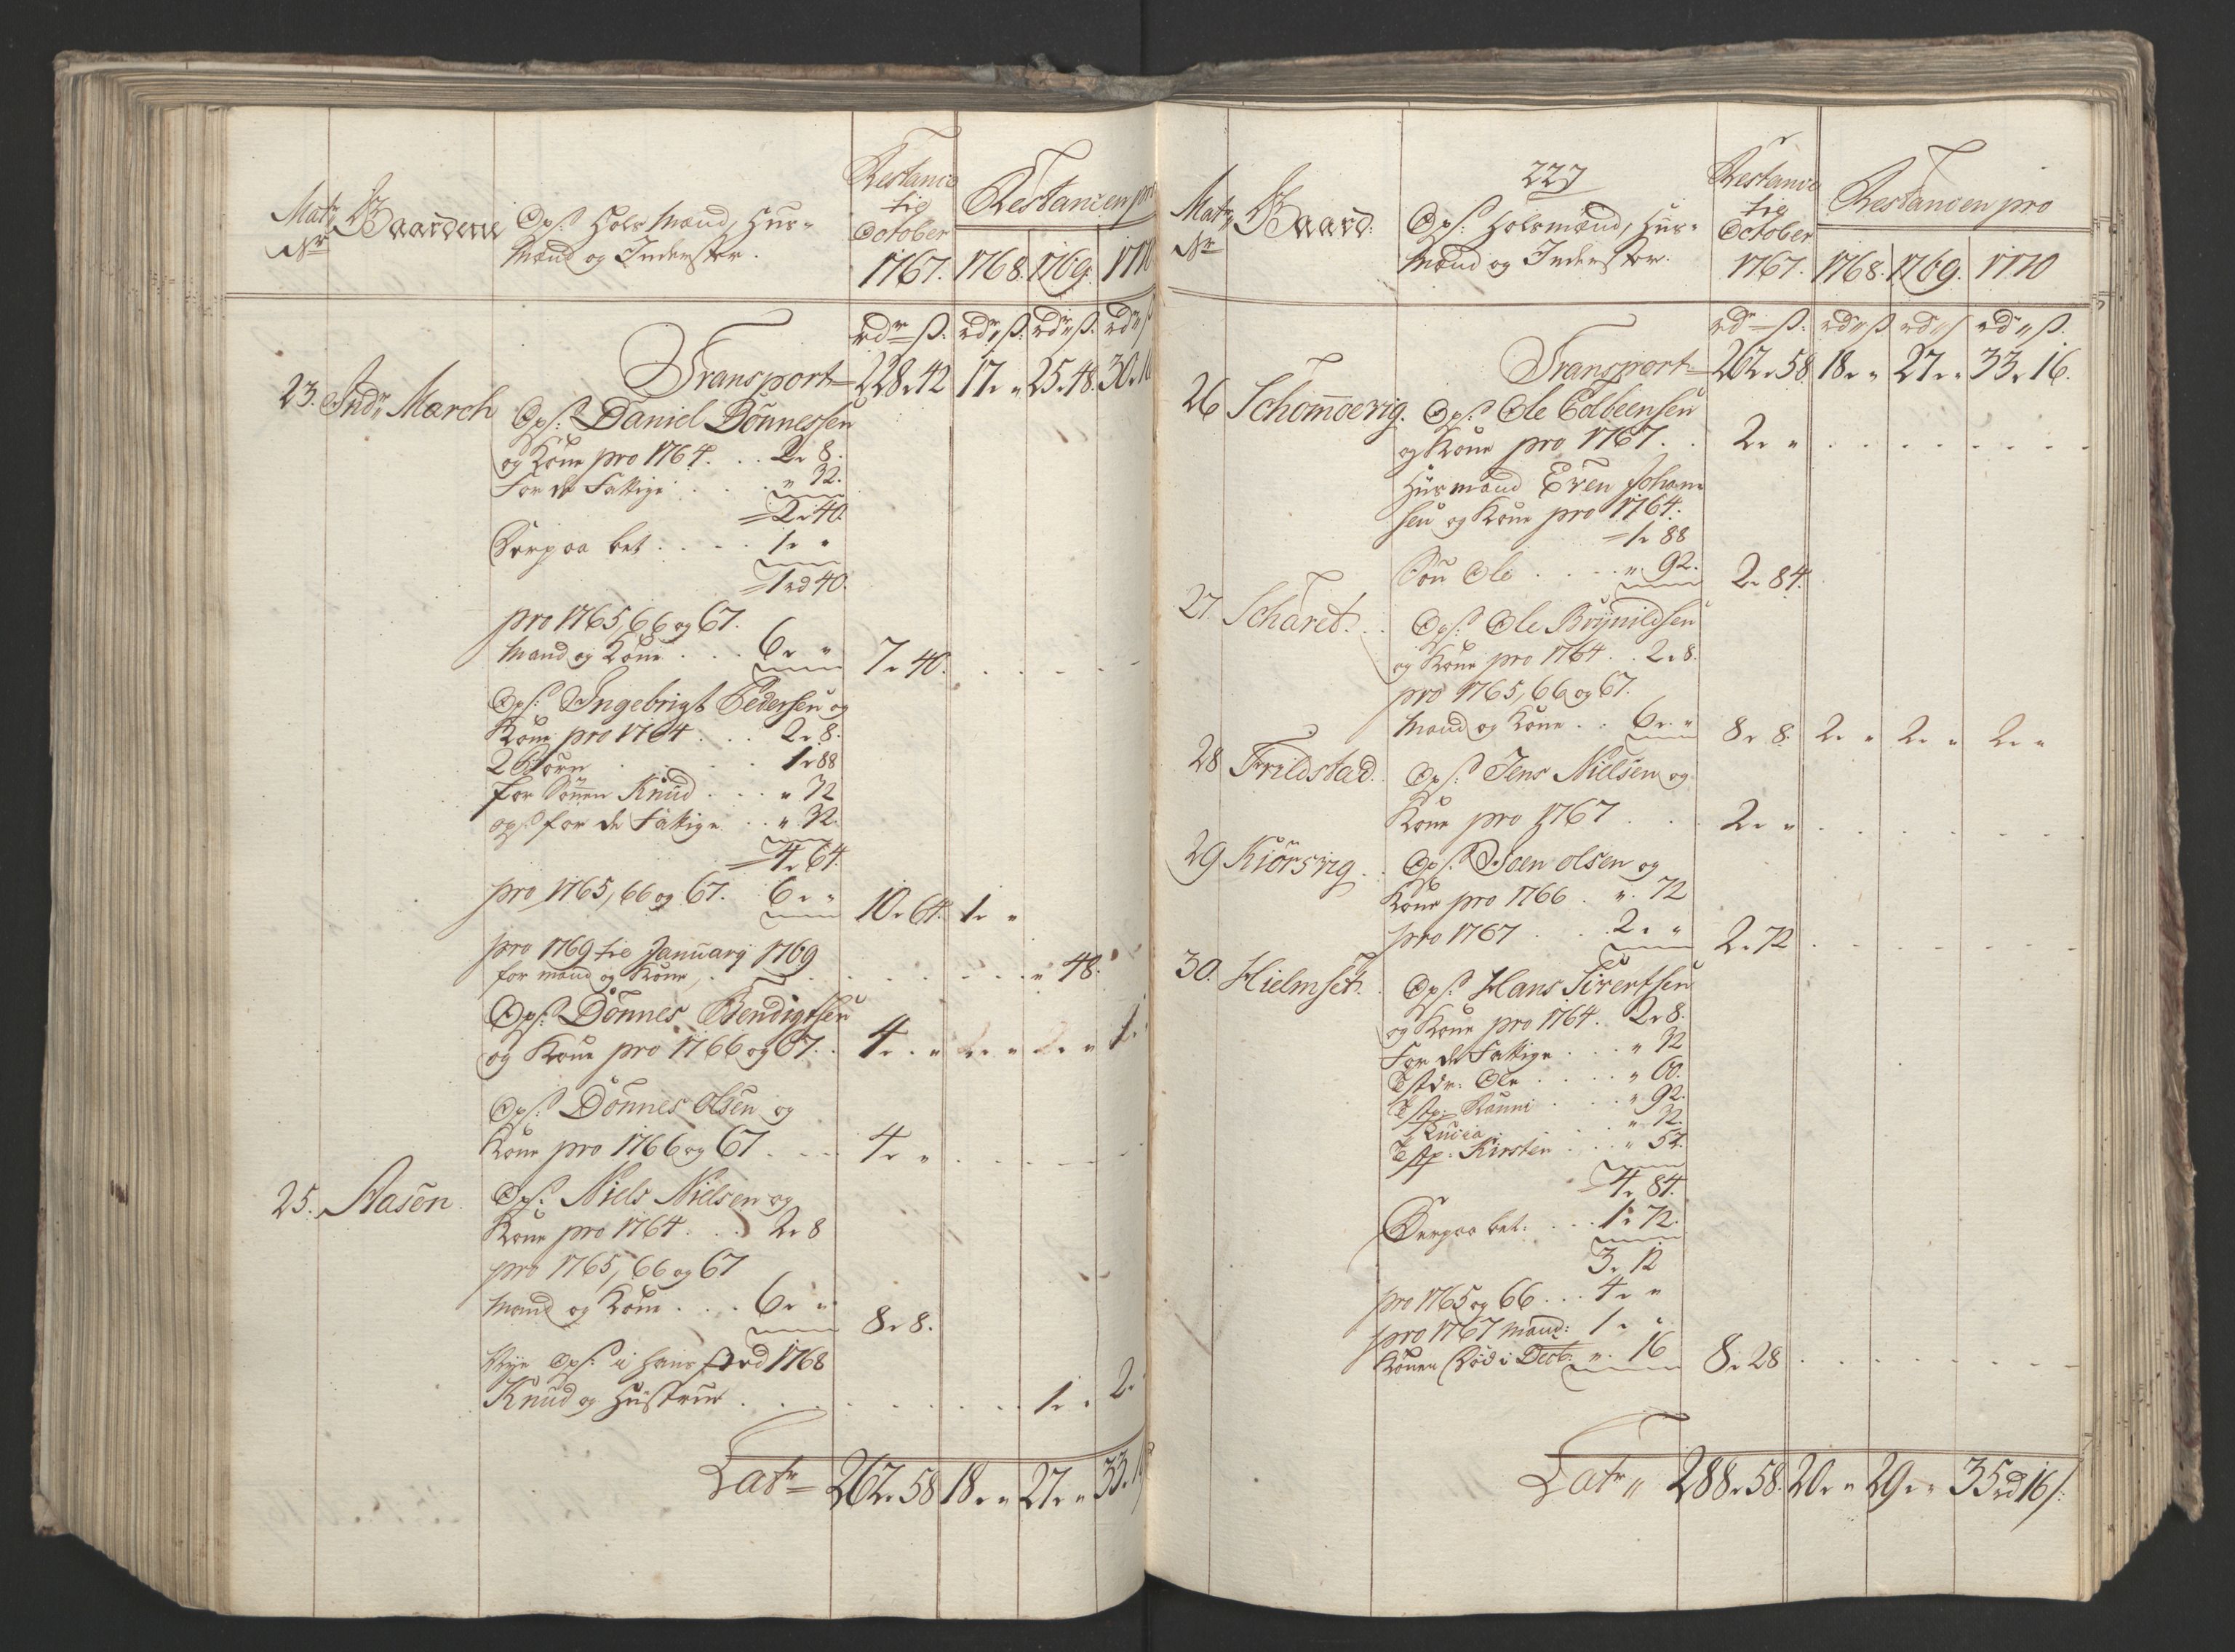 Restance Restancen pro
Matr Gaardene Ops: Holsmænd, Huus= til
Nr Mænd og Inderster. October
1767. 1768. 1769. 1770
rdr ß. rdr ß. rdr ß. rdr ß
Transport 228 „ 42 17 „ „ 25 „ 48. 30 „ 16
23. Indr March Ops: Daniel Dönnessen
og Kone pro 1764. . . 2 „ 8.
For de Fattige . . . „ 32.
2 „ 40.
Derpaa bet . . . . 1 „ „
1 rd 40.
pro 1765, 66 og 67.
Mand og Kone . . . 6 „ „ 7 „ 40.
Ops: Ingebrigt Pedersen og
Kone pro 1764 . . . 2 „ 8.
2 Børn . . . 1 „ 88
for Sønnen Knud . . . „ 32
ops: for de Fattige . . „ 32.
4 „ 64.
pro 1765, 66 og 67. 6 „ „ 10 „ 64. 1 „ „
pro 1769 til January 1769
for mand og Kone, . . . „ 48.
Ops: Dönnes Bendigtsen
og Kone pro 1766 og 67. . 4 „ „ 2 „ „ 2 „ „ 1 „
Ops: Dönnes Olsen og
Kone pro 1766 og 67 . . . 4 „ „
25. Aasen Ops: Niels Nielsen og
Kone pro 1764 . . . 2 „ 8
pro 1765, 66 og 67
Mand og Kone . . . 6 „ „ 8 „ 8.
Nye Ops: i hans sted 1768
Knud og Hustrue . . . 1 „ „ 2 „
Latr 262 „ 58 18 „ „ 27 „ „ 33 „ 16
227
Restance Restancen pro
Matr Gaard: Ops: Holsmænd, Huus= til
Nr Mænd og Inderster. October
1767. 1768. 1769. 1770
rdr ß. rd ß rd ß rd ß.
Transport 262 „ 58 18 „ „ 27 „ „ 33 „ 16.
26 Schomoevig. Ops: Ole Colbeensen
og Kone pro 1767. . 2 „ „
Huusmand Even Johan=
sen og Kone pro 1764.
1 „ 88
Søn Ole . . . . „ 92. 2 „ 84.
27. Scharet. Ops: Ole Brynildsen
og Kone pro 1764 . . 2 „ 8.
pro 1765, 66 og 67.
Mand og Kone . . 6 „ „ 8 „ 8. 2 „ „ 2 „ „ 2 „ „
28 Frildstad. Ops: Jens Nielsen og
Kone pro 1767 . . . 2 „ „
29 Kiörsvig. Ops: Joen Olsen og
Kone pro 1766 . „ 72
pro 1767 . . . 2 „ „ 2 „ 72
30. Hielmset. Ops: Hans Sivertsen
og Kone pro 1764. 2 „ 8.
For de Fattige . . . „ 32
Ole . . . . „ 60.
Ranni . . . „ 92.
Lucia . . . „ 32.
Kirsten . . . „ 52.
4 „ 84.
Derpaa bet. . . . 1 „ 72.
3 „ 12
pro 1765 og 66 . . . 4 „ „
pro 1767 Mand: 1 „ „
Konen Død i Decb: „ 16 8 „ 28
Latr „ 288 „ 58. 20 „ „ 29 „ „ 35 rd 16 ß.